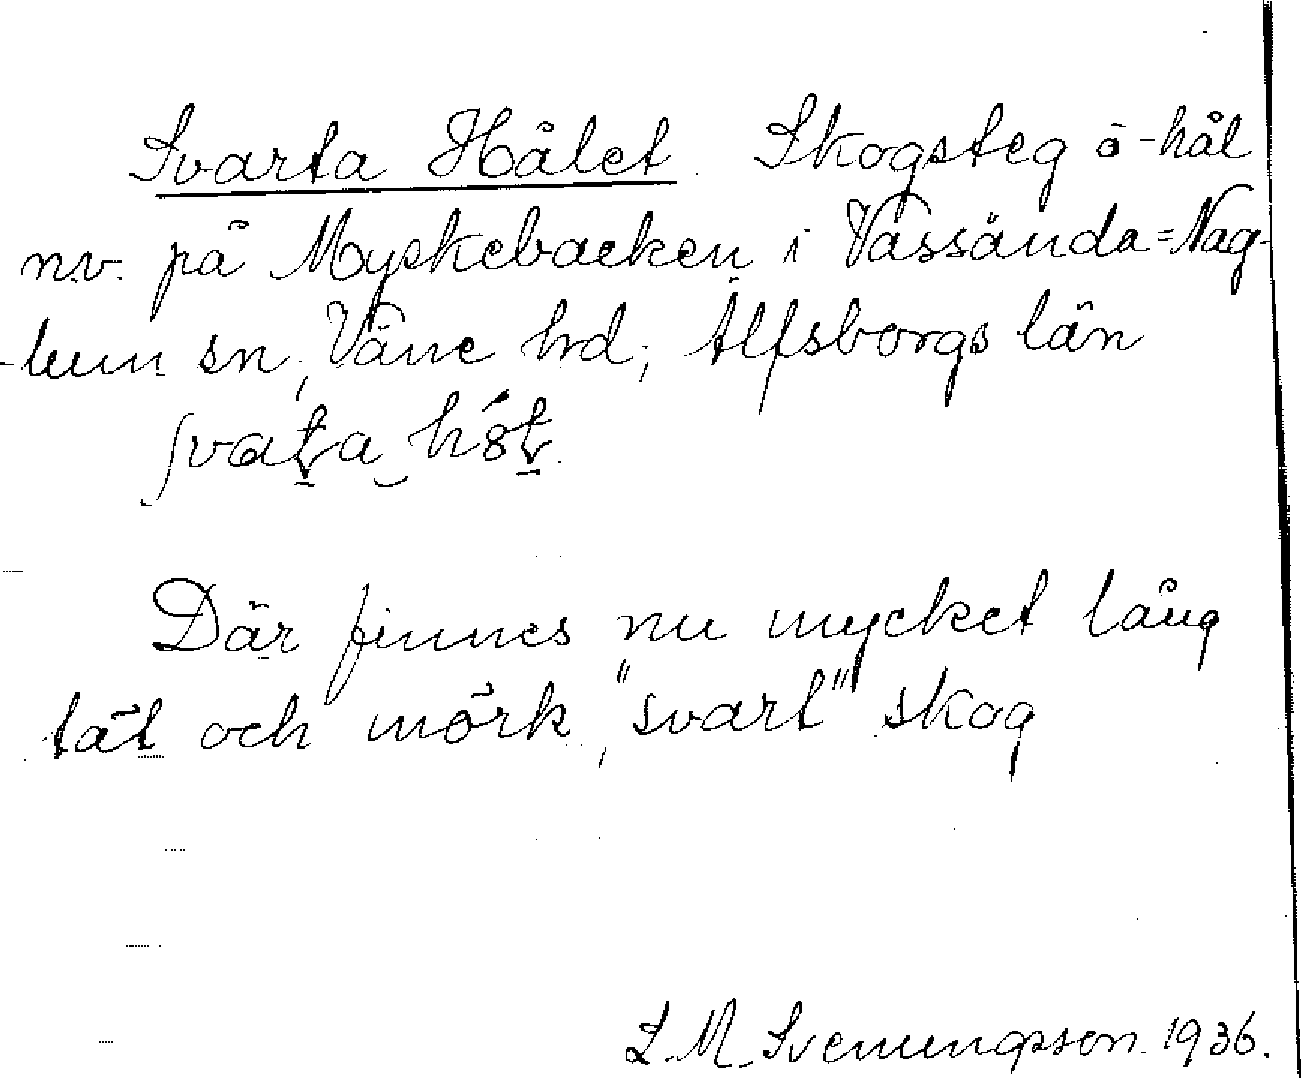 Svarta Hålet. Skogsteg o -hål
n.v. på Myskebacken i Vassända=Nag-
-lum sn, Väne hrd, Älfsborgs län

Där finnes nu mycket lång
tät och mörk, "svart" skog
L.M. Svenungsson 1936.